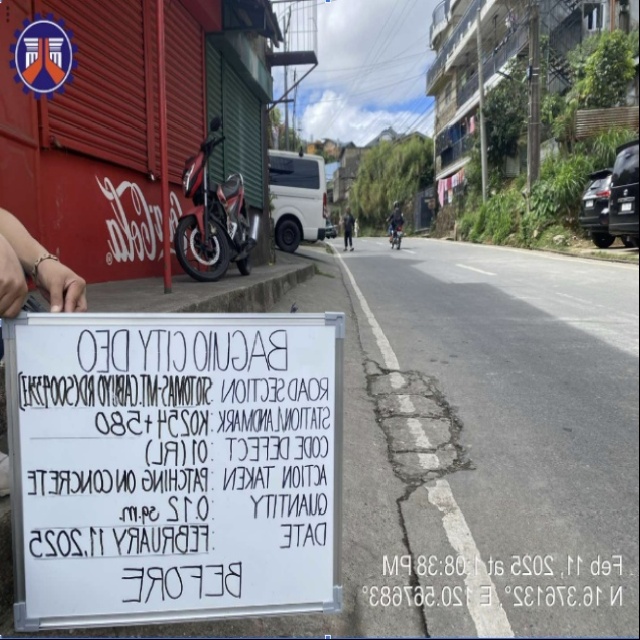 Coca-Cola
BAGUIO CITY DEO
ROAD SECTION : STO TOMAS-MT. CABUYO RD (S00493BG)
STATION/LANDMARK : K0254+580
CODE DEFECT : 01(RL)
ACTION TAKEN : PATCHING ON CONCRETE
QUANTITY : 0.12 sq.m.
DATE : FEBRUARY 11, 2025
BEFORE
Feb 11, 2025 at 1:08:38 PM
N 16.376132°, E 120.567683°